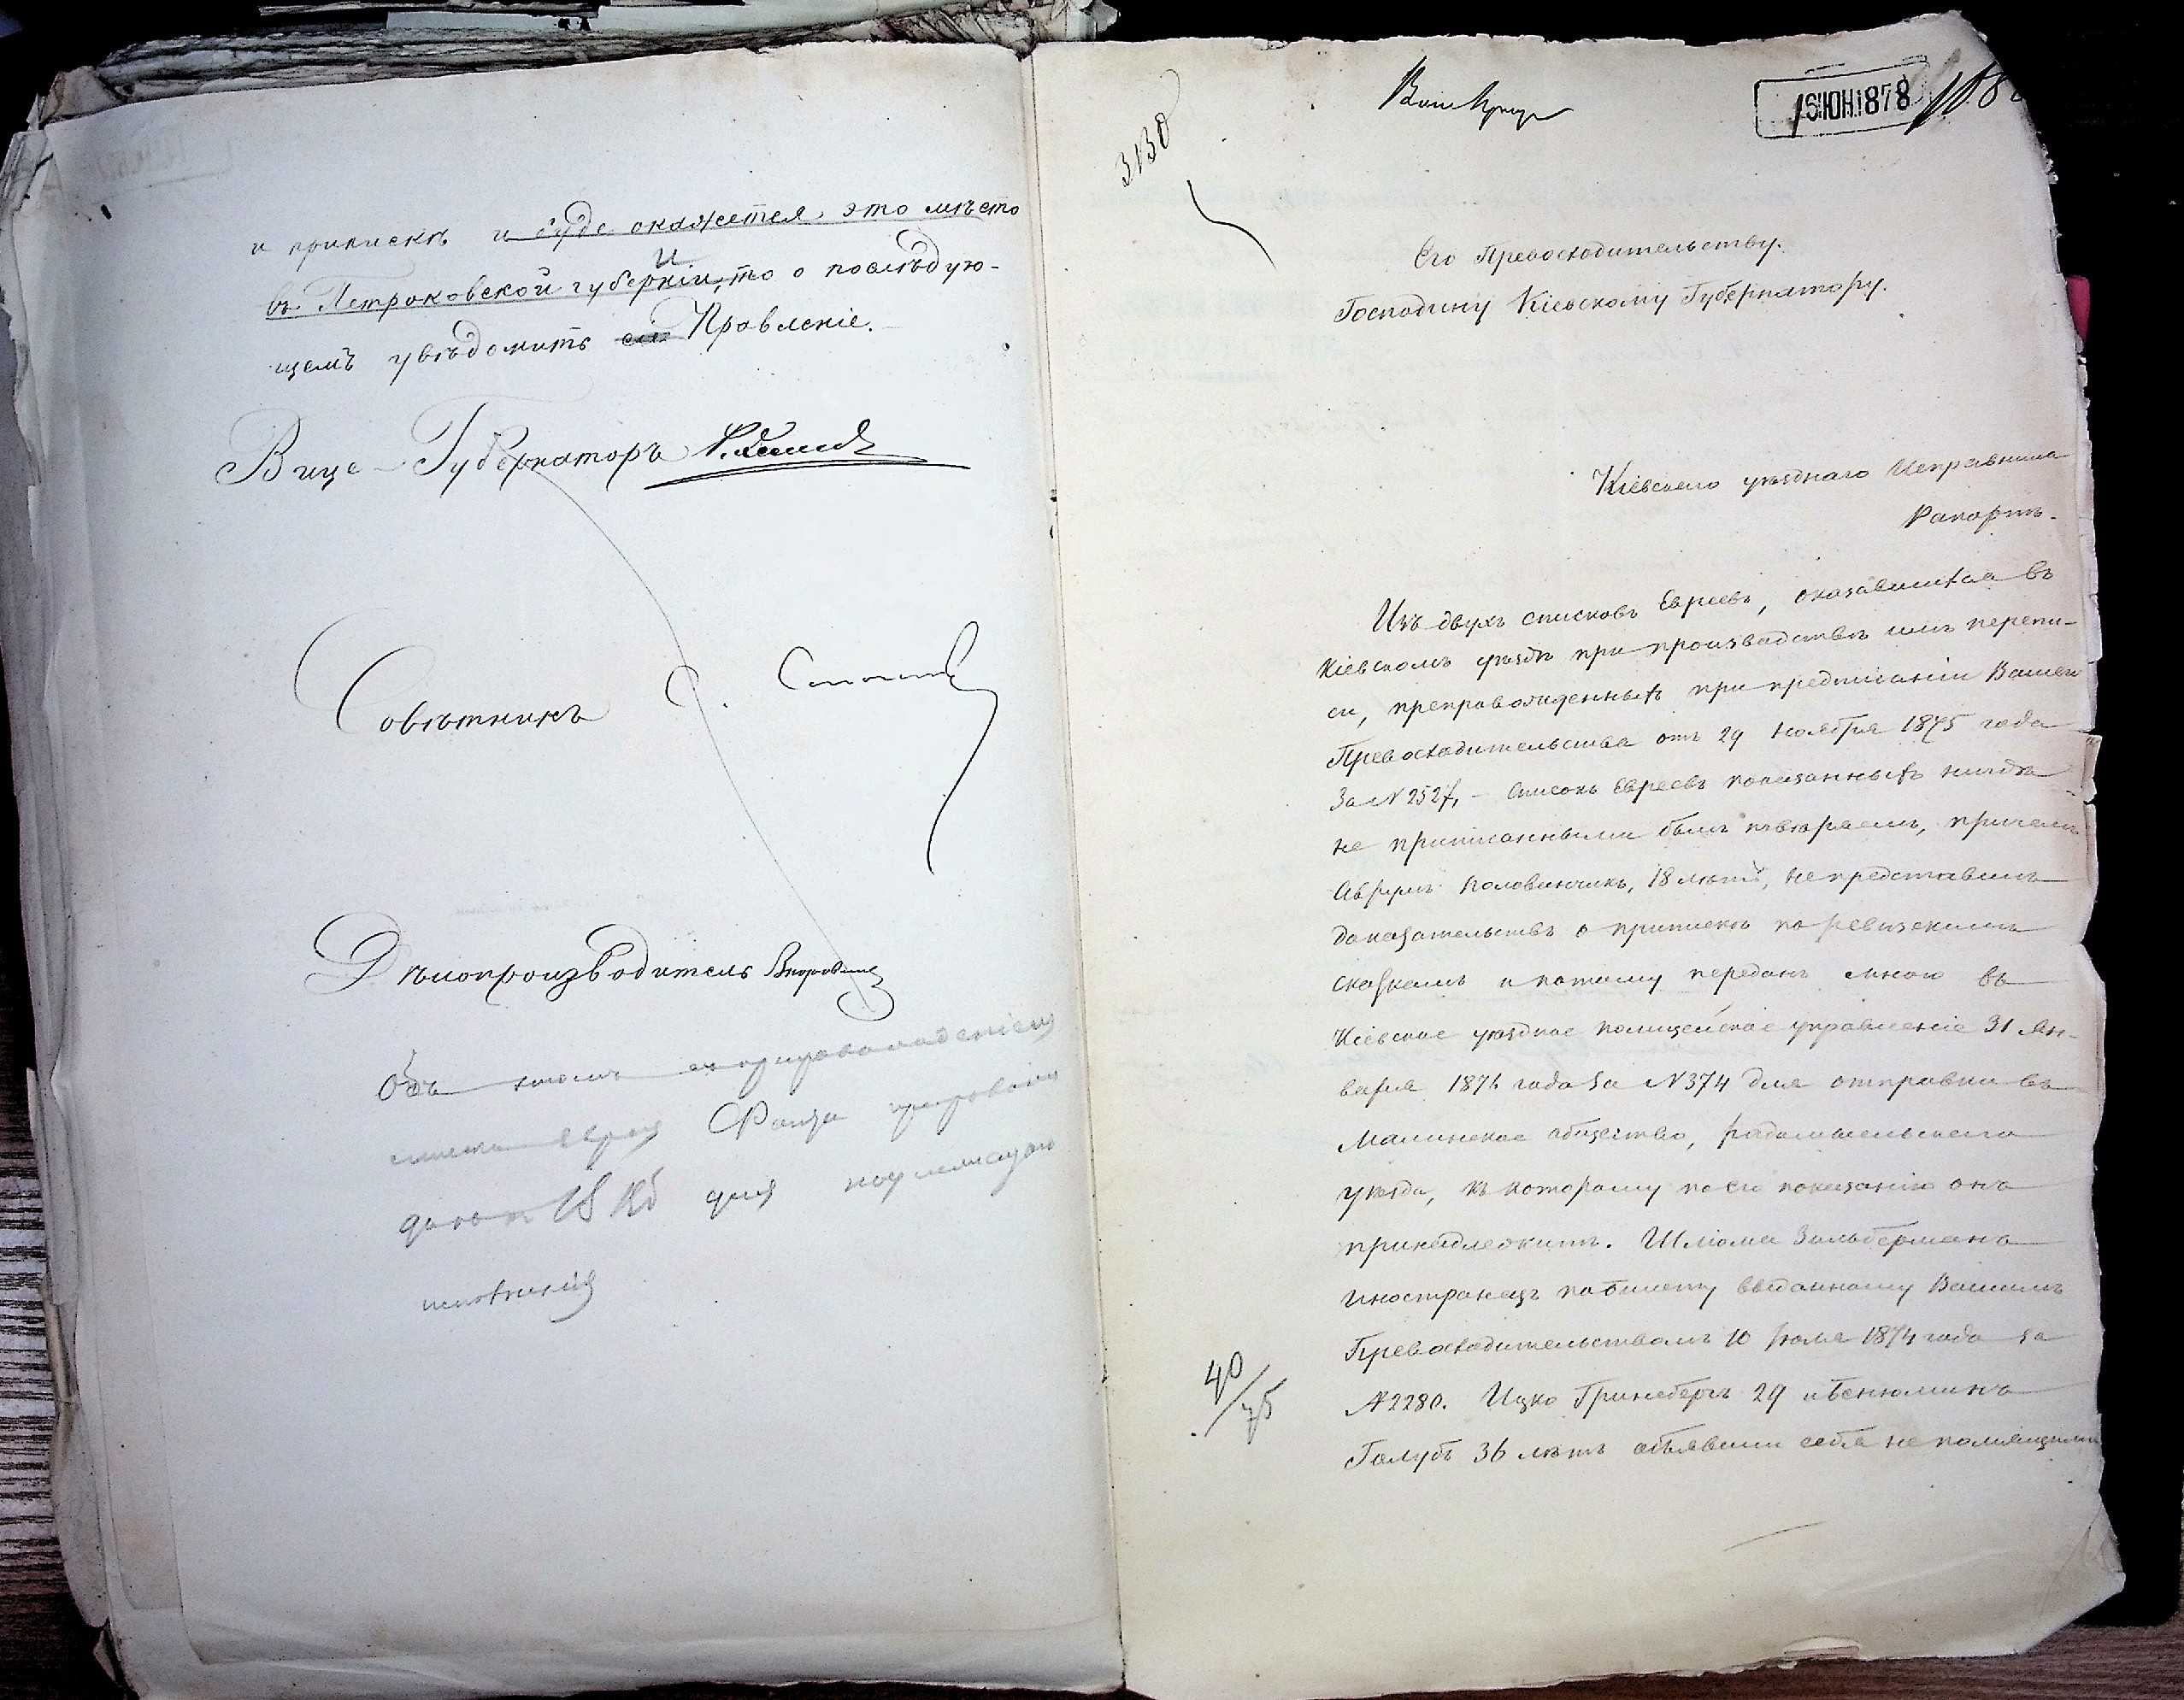 и припискѣ и буде окажется, это мѣсто
въ Петроковской губерніи, и то о послѣдую-
щемъ увѣдомить Правленіе.
Вице-Губернаторъ
Совѣтникъ
Дѣлопроизводитель
Объ этомъ
Франца
18
дня
3130
16 ЮН 1878
Его Превосходительству.
Господину Кіевскому Губернатору.
Кіевскаго уѣзднаго Исправника
Рапортъ.
Изъ двухъ списковъ Евреевъ, оказавшихся въ
Кіевскомъ уѣздѣ при производствѣ имъ перепи-
си, препровожденныхъ при предписаніи Вашего
Превосходительства отъ 29 Ноября 1875 года
За N 2527, - Списокъ Евреевъ показанныхъ нигдѣ
не приписанными былъ повѣряемъ, причемъ
Половинчикъ, 18 лѣтъ, не представилъ
доказательствъ о припискѣ по ревизскимъ
сказкамъ и потому переданъ мною въ
Кіевское уѣздное полицейское управленіе 31 Ян-
варя 1876 года за N 374 для отправки въ
Малинское общество, радомысльскаго
уѣзда, къ которому по его показанію онъ
принадлежитъ. Шлiома Зильберманъ
иностранецъ по билету выданному Вашимъ
Превосходительствомъ 10 Іюля 1874 года за
N 2280. Ицко Гринбергъ 29 и Бенюминъ
Голубъ 36 лѣтъ объявили себя не помнящими
40/75